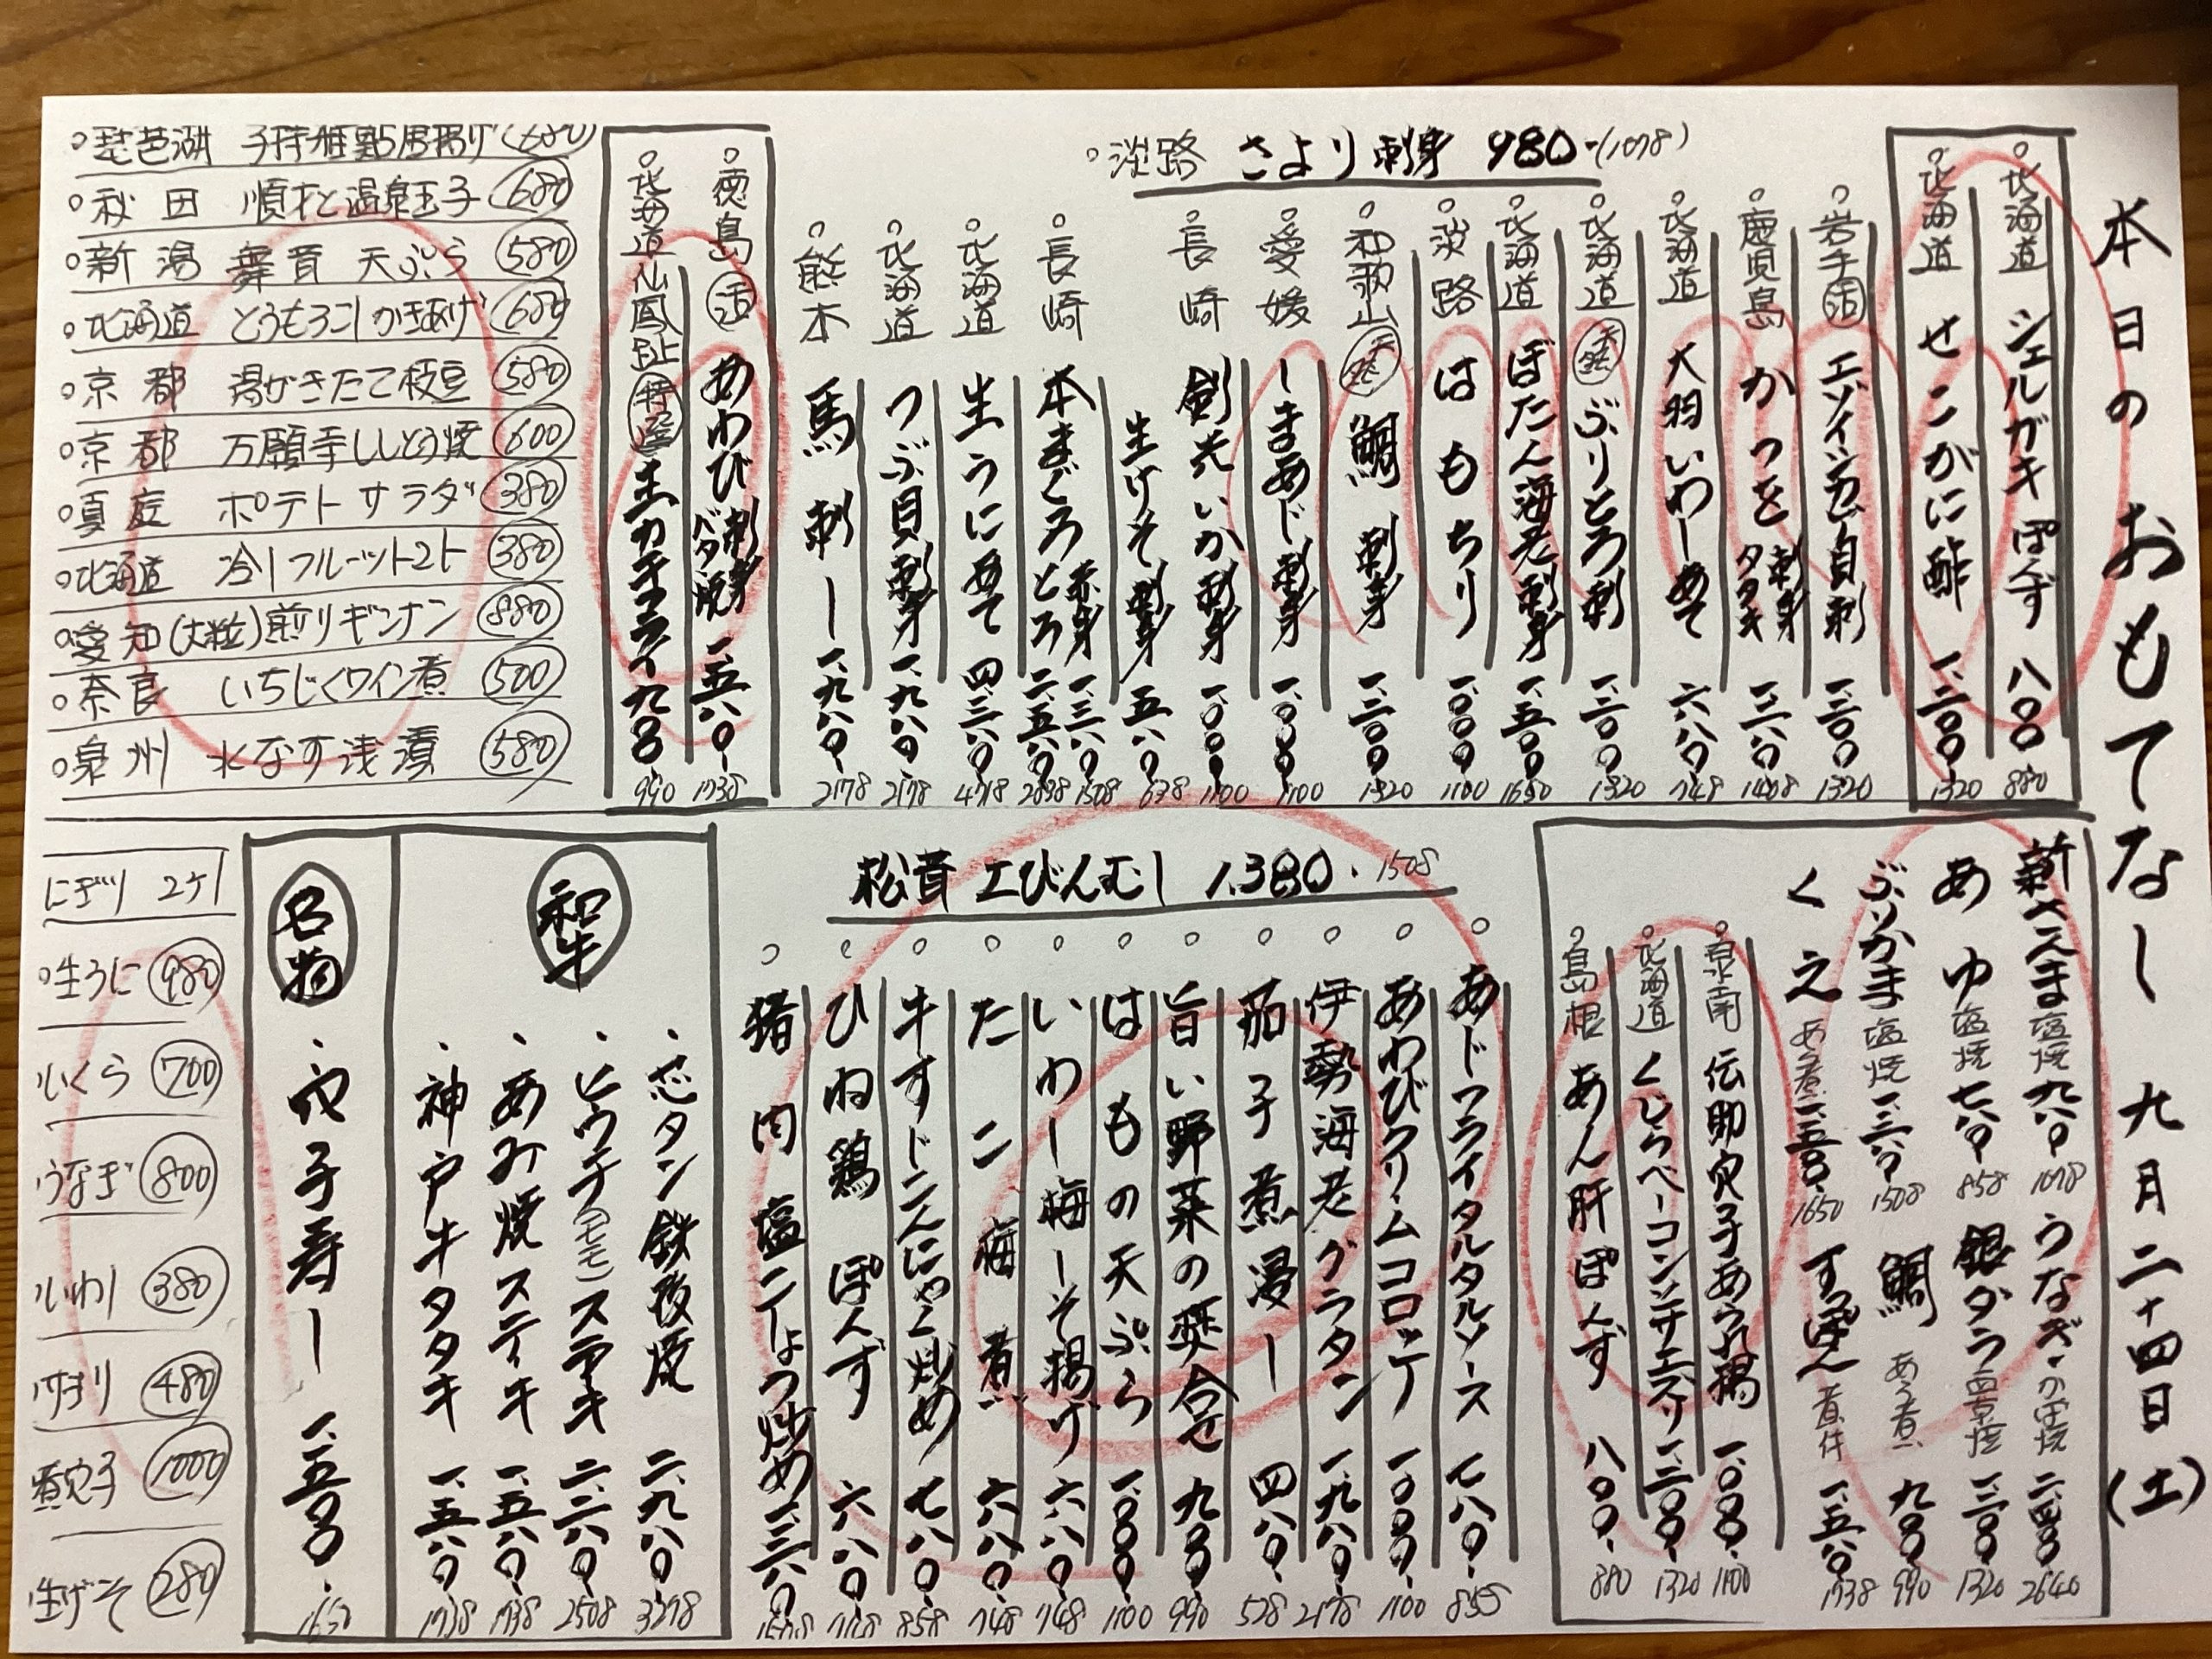 本日のおもてなし 九月二十四日(土)
北海道 シェルガキぽんず 八〇〇 880
北海道 せこがに酢 一、二〇〇 1320
岩手 活 エゾイシカゲ貝刺 一、二〇〇 1320
鹿児島 かつを 刺身 タタキ 一、二八〇 1408
北海道 大羽いわしあて 六八〇 748
北海道 天然 ぶりとろ刺 一、二〇〇 1320
北海道 ぼたん海老刺身 一、五〇〇 1650
淡路 はもちり 一、〇〇〇 1100
和歌山 天然 鯛刺身 一、二〇〇 1320
愛媛 しまあじ刺身 一、〇〇〇 1100
長崎 剣先いか刺身 一、〇〇〇 1100
生げそ刺身 五八〇 638
長崎 本まぐろ 赤身 一、三八〇 1508
とろ 二、五八〇 2838
北海道 生うにあて 四、三八〇 4718
北海道 つぶ貝刺身 一、九八〇 2178
熊本 馬刺し 一、九八〇 2178
淡路 さより刺身 980-(1078)
徳島 活 あわび 刺身 バタ焼 一、五八〇 1738
北海道 仙鳳趾 特選 生カキフライ 九〇〇 990
琵琶湖 子持稚鮎唐揚げ 680
秋田 順才と温泉玉子 680
新潟 舞茸 天ぷら 580
北海道 とうもろこしかきあげ 680
京都 湯がきたて枝豆 580
京都 万願寺ししとう焼 600
真庭 ポテトサラダ 380
北海道 冷しフルーツトマト 380
愛知(大粒)煎りギンナン 880
奈良 いちじくワイン煮 500
泉州 水なす浅漬 580
新さんま 塩焼 九八〇 1078
あゆ 塩焼 七八〇 858
ぶりかま 塩焼 一、三八〇 1508
くえ あら煮 一、五〇〇 1650
うなぎ・かば焼 二、四〇〇 2640
銀ダラ 西京焼 一、二〇〇 1320
鯛 あら煮 九〇〇 990
すっぽん 煮付 一、五八〇 1738
泉南 伝助穴子あられ揚 一、〇〇〇 1100
北海道 くじらベーコンユッケ 一、二〇〇 1320
島根 あん肝ぽんず 八〇〇 880
松茸 土びんむし 1.380. 1508
あじフライタルタルソース 七八〇 858
あわびクリームコロッケ 一、〇〇〇 1100
伊勢海老グラタン 一、九八〇 2178
茄子煮浸し 四八〇 528
旨い野菜の炊合せ 九〇〇 990
はもの天ぷら 一、〇〇〇 1100
いわし梅しそ揚げ 六八〇 748
たこ梅煮 六八〇 748
牛すじこんにゃく炒め 七八〇 858
ひね鶏ぽんず 六八〇 748
猪肉塩こしょう炒め 一、三八〇 1508
和牛
芯タン鉄板焼 二、九八〇 3278
ヒウチ(モモ)ステーキ 二、二八〇 2508
あみ焼ステーキ 一、五八〇 1738
神戸牛タタキ 一、五八〇 1738
名物
穴子寿し 一、五〇〇 1650
にぎり 2ケ
生うに 980
いくら 700
うなぎ 800
いわし 380
けずり 480
煮穴子 1000
生げそ 280